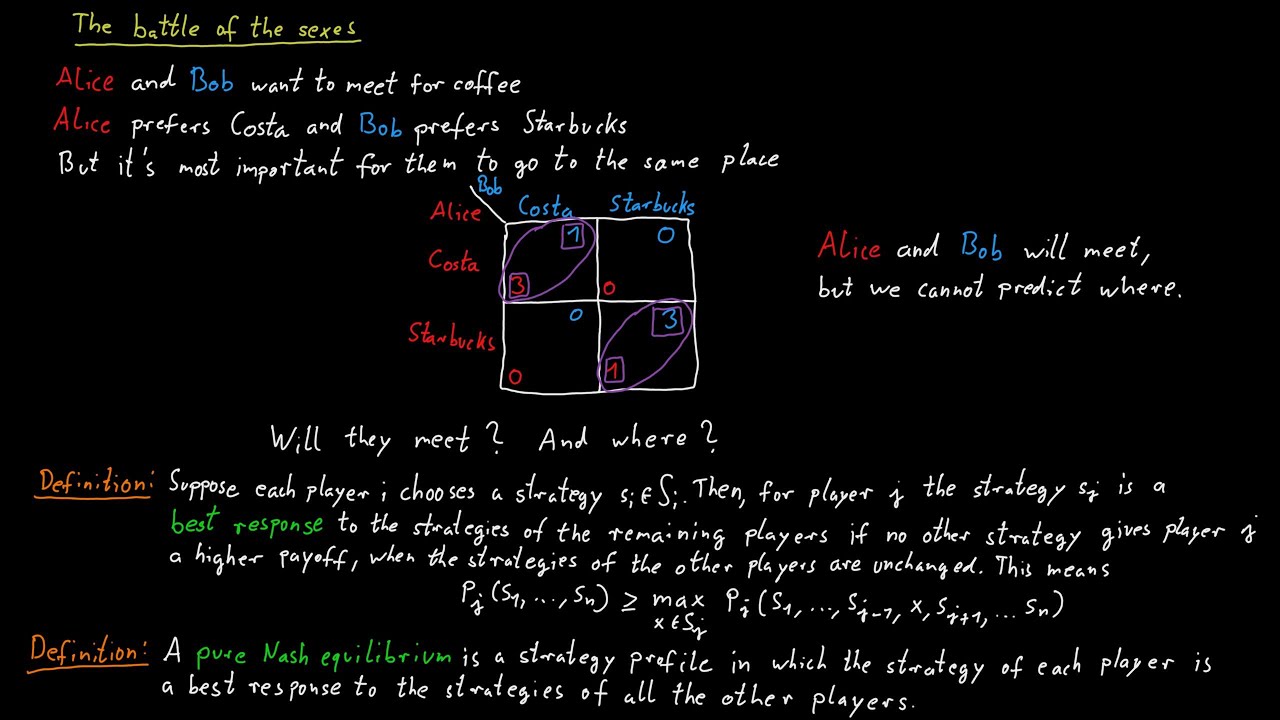 The battle of the sexes
Alice and Bob want to meet for coffee
Alice prefers Costa and Bob prefers Starbucks
But it's most important for them to go to the same place
Bob
Alice Costa Starbucks
Costa 3 1 0 0
Starbucks 0 0 1 3
Alice and Bob will meet,
but we cannot predict where.
Will they meet? And where?
Definition: Suppose each player i chooses a strategy sᵢ ∈ Sᵢ. Then, for player j the strategy sⱼ is a
best response to the strategies of the remaining players if no other strategy gives player j
a higher payoff, when the strategies of the other players are unchanged. This means
Pⱼ(s₁, ..., sₙ) ≥ max Pⱼ(s₁, ..., sⱼ₋₁, x, sⱼ₊₁, ... sₙ)
x ∈ Sⱼ
Definition: A pure Nash equilibrium is a strategy profile in which the strategy of each player is
a best response to the strategies of all the other players.